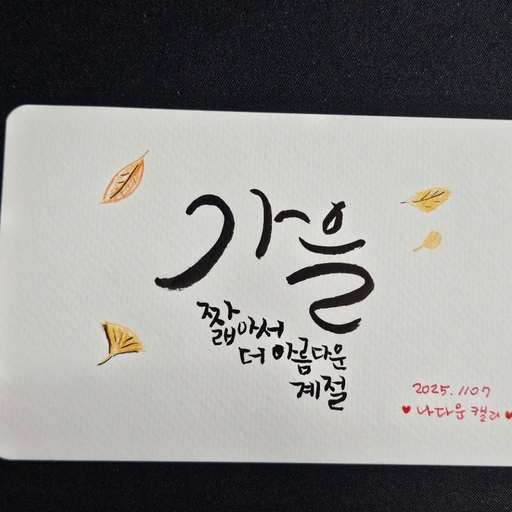 가을
짧아서
더 아름다운
계절
2025.1107
♥나다운 캘리♥